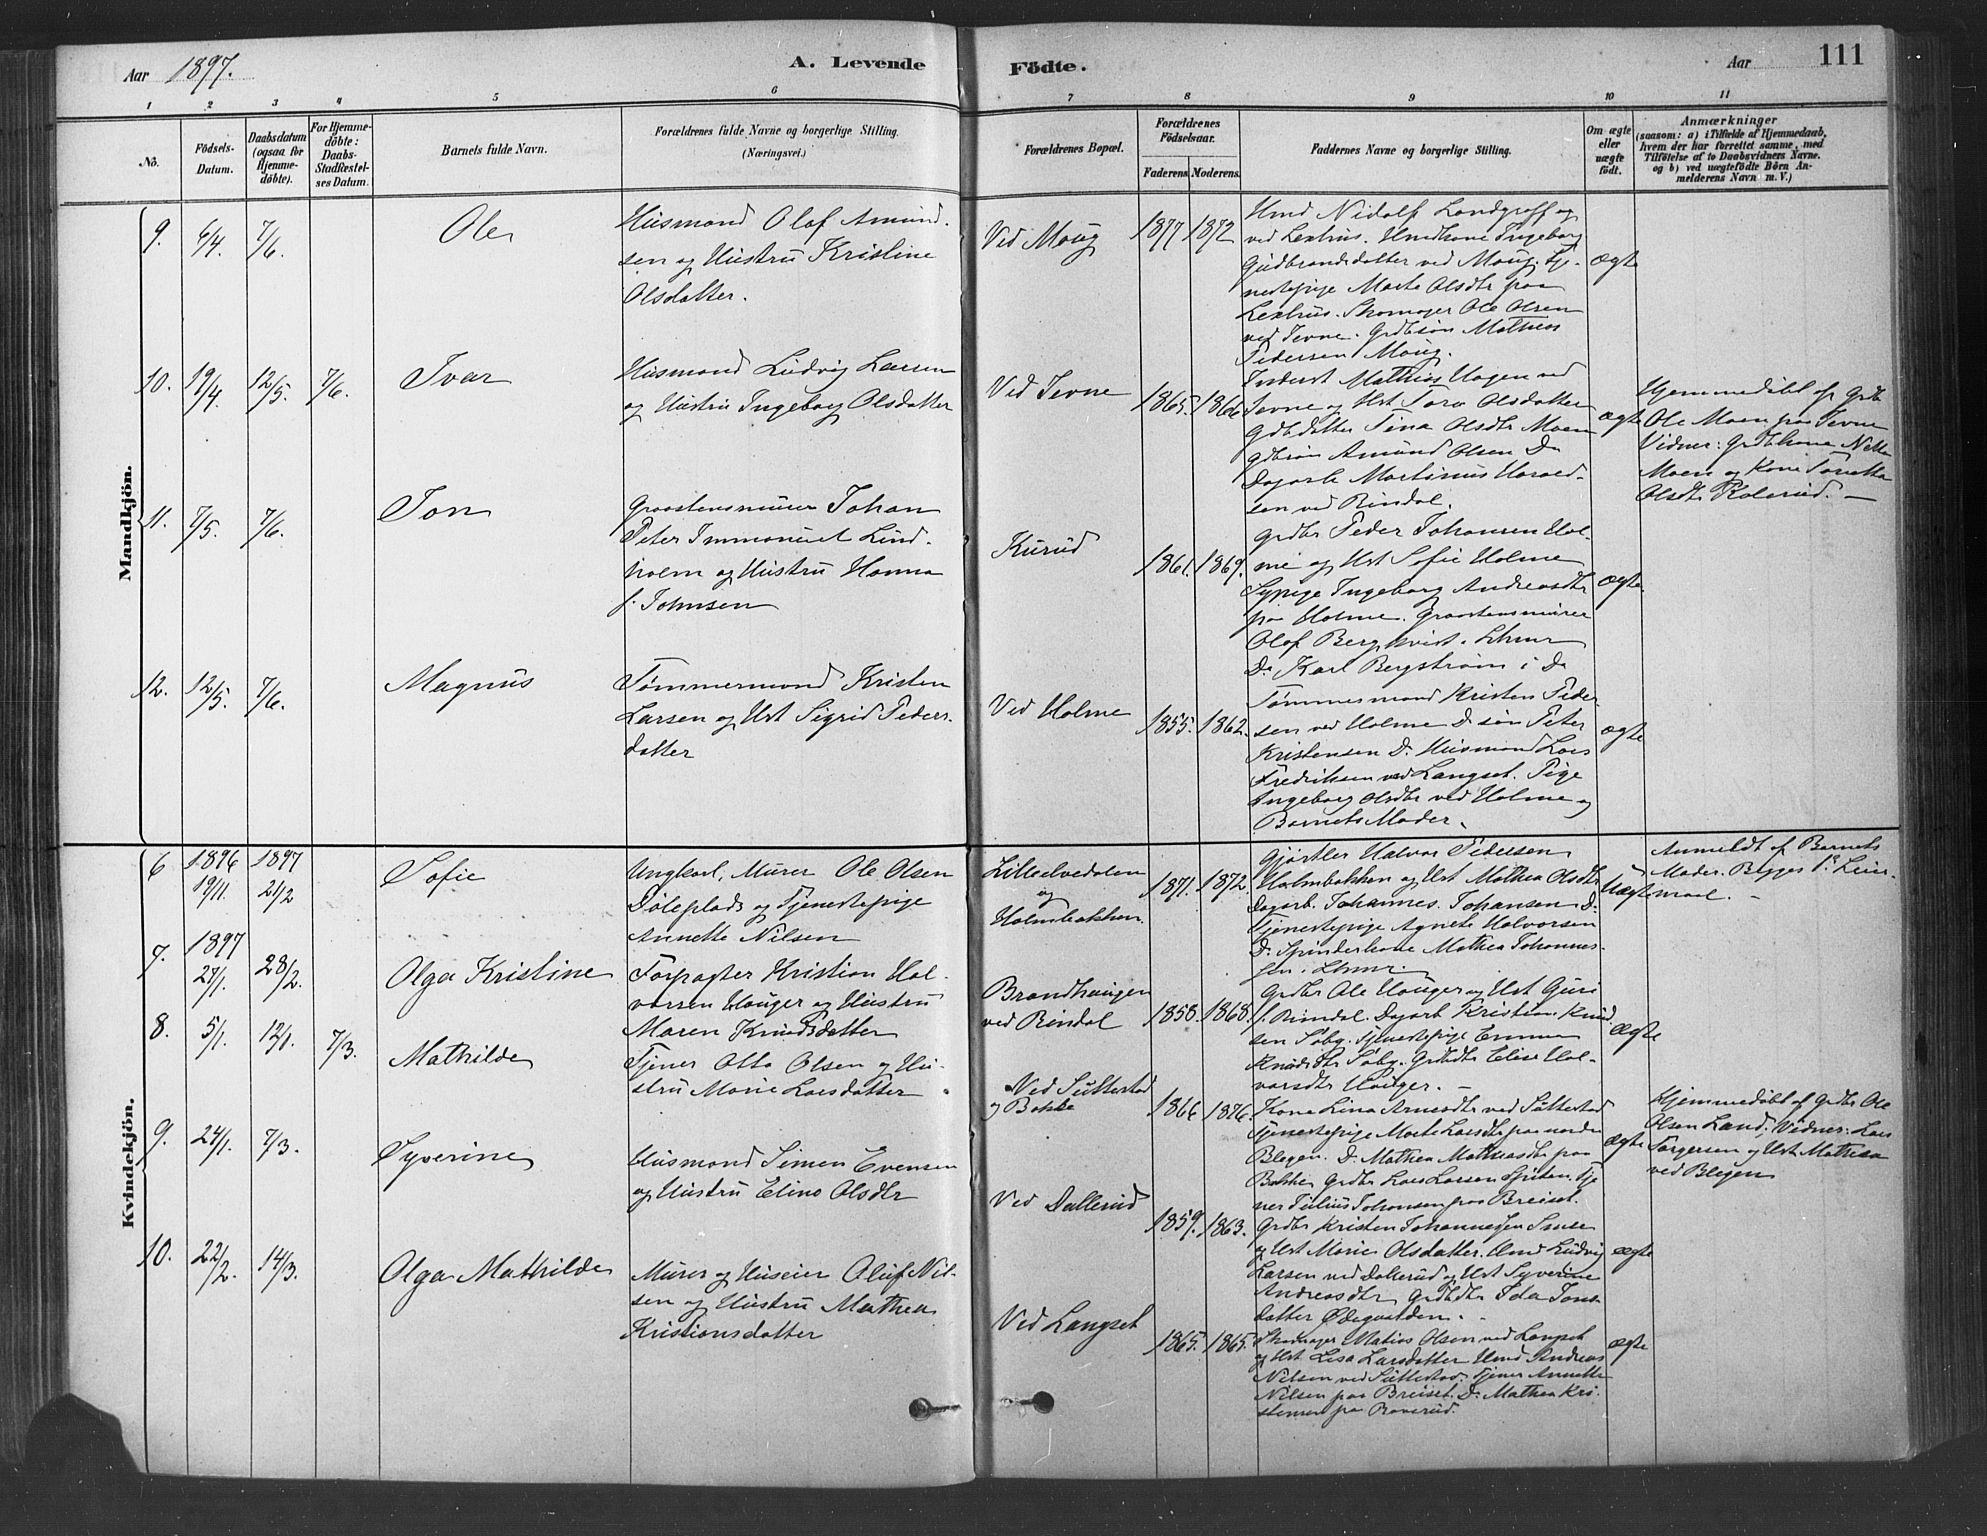 Aar 1897.
A. Levende
Födte.
Aar
111
1
2
3
4
5
6
7
8
9
10
11
No.
Födsels-
Datum.
Daabsdatum
(ogsaa for
Hjemme-
döbte).
For Hjemme-
döbte:
Daabs-
Stadfæstel-
ses Datum.
Barnets fulde Navn.
Forældrenes fulde Navne og borgerlige Stilling.
(Næringsvei.)
Forældrenes Bopæl.
Forældrenes
Födselsaar.
Faderens
Moderens.
Faddernes Navne og borgerlige Stilling.
Om ægte
eller
uægte
födt.
Anmærkninger
(saasom: a) i Tilfælde af Hjemmedaab,
hvem der har forrettet samme, med
Tilföielse af to Daabsvidners Navne.
og b) ved uægtefödte Börn An-
melderens Navn m. V.)
Mandkjön.
9.
6/4.
7/6.
Ole
Husmand Olaf Amund-
sen og Hustru Kristine
Olsdatter.
Ved Moug
1877
1872
Hmd Nidolf Landgraff og
ved Lexhus. Hmdkone Ingeborg
Gudbrandsdatter ved Moug. Tje-
nestepige Marte Olsdtr paa
Lexhus. Skomager Ole Olsen
ved Jevne. Grdbsøn Mathias
Pedersen Moug.
ægte
10.
19/4.
12/5.
7/6.
Ivar
Husmand Ludvig Larsen
og Hustru Ingeborg Olsdatter
Ved Jevne
1865.
1866
Inderst Mathias Hagen ved
Jevne og Hst Tora Olsdatter
Gdb.datter Tina Olsdtr Moen
gdbsøn Amund Olsen Do
Dagarb Martinus Harald-
sen ved Rindal.
ægte
Hjemmedøbt af Grdb
Ole Moen paa Jevne
Vidner: Grdbkone
Moen og Kone
Olsdtr Kolerud. —
11.
7/5.
7/6.
Jon
Graastensmurer Johan
Peter Immanuel Lind-
holm og Hustru Hanna
f. Johnsen
Kurud
1861.
1869.
Grdbr Peder Johansen Hol-
me og Hst Sofie Holme
Sypige Ingeborg Andreasdtr
paa Holme. Graastensmurer
Olaf Bergkvist. Lhmr
Do Karl Bergstrøm i Do
ægte
12.
12/5.
7/6.
Magnus
Tømmermand Kristen
Larsen og Hst Sigrid Peders-
datter
Ved Holme
1855.
1862.
Tømmermand Kristen Peder-
sen ved Holme D. søn Peter
Kristensen Do Husmand Lars
Fredriksen ved Langset. Pige
Ingeborg Olsdtr ved Holme og
Barnets Moder.
ægte
Kvindekjön.
6
1896
19/11.
1897
21/2
Sofie
Ungkarl, Murer Ole Olsen
Døleplads og Tjenestepige
Annette Nilsen
Lilleelvedalen
og
Holmbakken.
1871.
1872.
Gjørtler Halvor Pedersen
Holmbakken og Hst Mathea Olsdtr
Dagarb. Johannes Johansen Do
Tjenestepige Agnete Halvorsen
Do Spinderkone Mathea Johannes-
sen i Lhmr.
Uægte
Anmeldt af Barnets
Moder. Begges 1ste Leier-
maal.
7.
1897
27/1.
28/2.
Olga Kristine
Forpagter Kristian Hal-
vorsen Hauger og Hustru
Maren Knudsdatter
Brandhaugen
ved Rindal
1858.
1868.
Grdbr Ole Hauger og Hst Guri
f. Rindal. Dagarb Kristian Knud
sen Søby. Tjenestepige Emma
Knudsdtr Søby. Grdbdtr Elise Hal-
vorsdtr Hauger. —
ægte
8.
5/1.
12/1.
7/3.
Mathilde
Tjener Otto Olsen og Hu-
stru Marie Larsdatter
Ved Suttestad
og Bakke
1866
1876.
Kone Lina Arnesdtr ved Suttestad
Tjenestepige Marte Larsdtr paa nordre
Blegen. Do Mathea Mathiasdtr paa
Bakke Grdbr Lars Larsen Tje
ner Julius Johansen paa Breiset.
ægte
Hjemmedøbt af Grdbr Ole
Olsen Land, Vidner: Lars
Torgersen og Hst Mathea
ved Blegen
9.
24/1.
7/3.
Syverine
Husmand Simen Evensen
og Hustru Eline Olsdtr
Ved Dallerud
1859.
1863.
Grdbr Kristen Johannessen
og Hst Marie Olsdatter. Hmd Ludvig
Larsen ved Dallerud og Hst Syverine
Andreasdtr Grdbdtr Ida Jons-
datter Ødegaarden.
ægte
10.
22/2.
14/3.
Olga Mathilde
Murer og Huseier Oluf Nil-
sen og Hustru Mathea
Kristiansdatter
Ved Langset
1865.
1865.
Skomager Matias Olsen ved Langset
og Hst Lisa Larsdatter Hmd Andreas
Nilsen ved Suttestad. Tjener Annette
Nilsen paa Breiset. Do Mathea Kri-
stensen paa
ægte